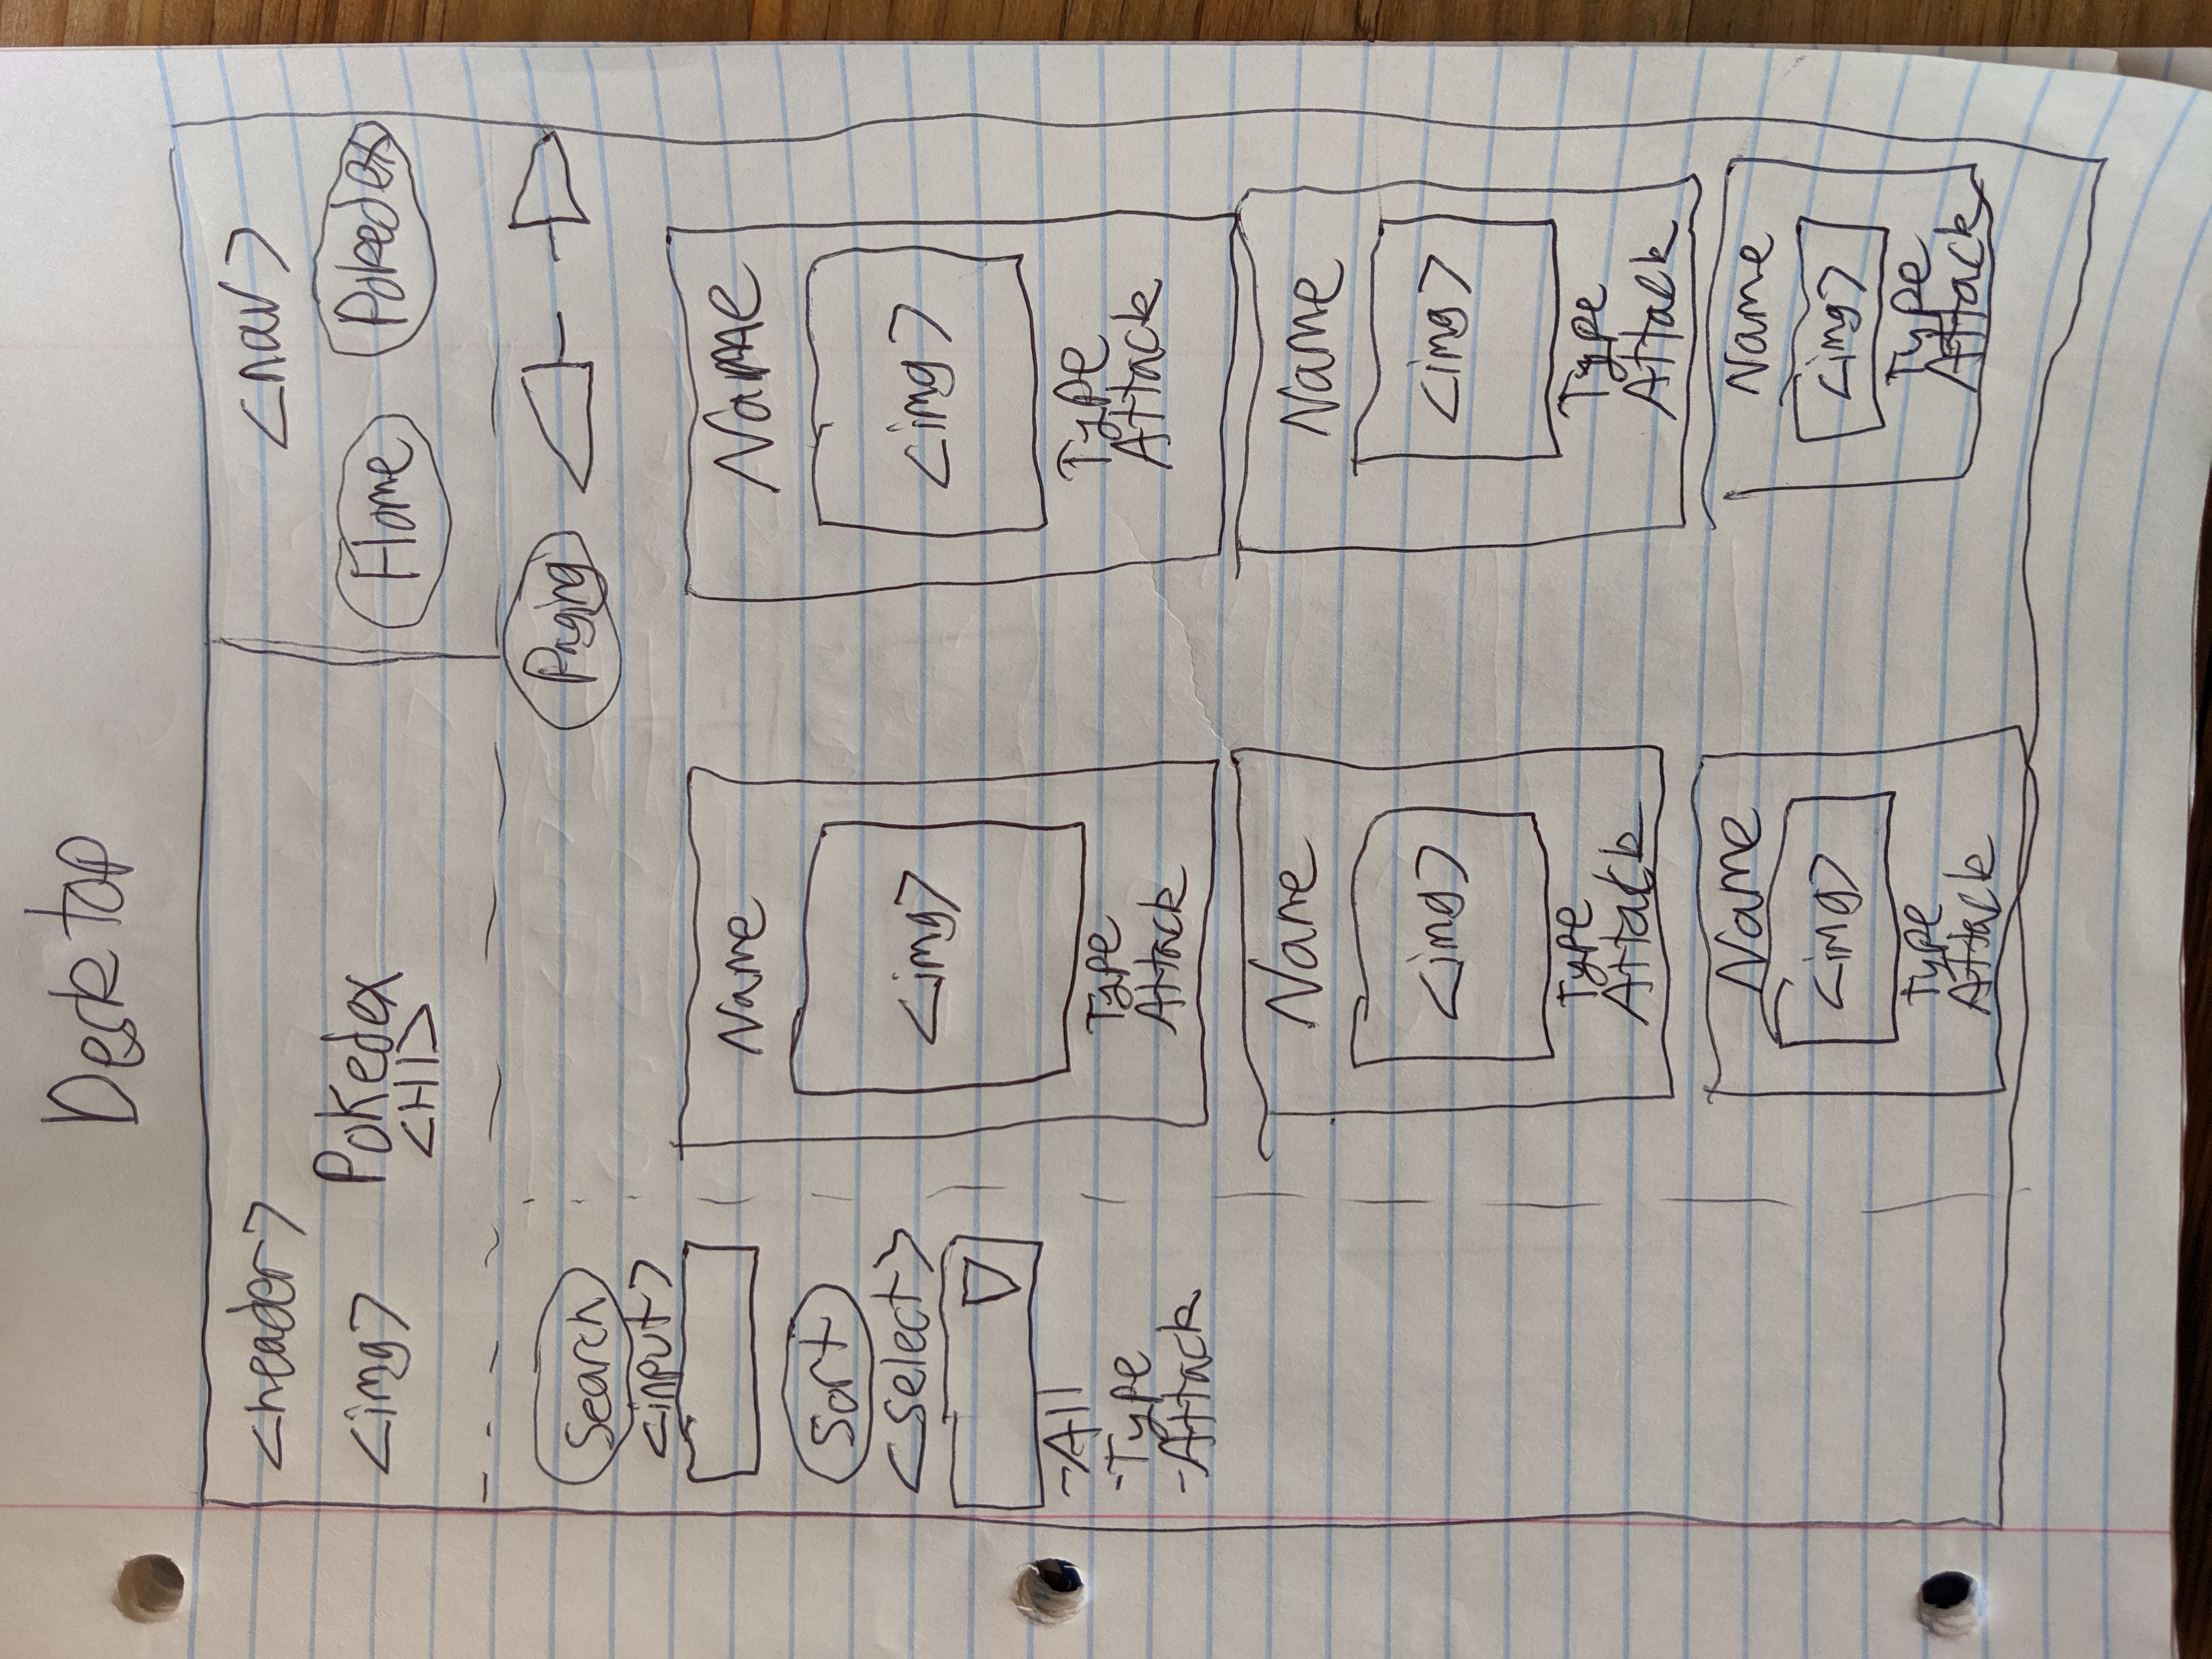 Desktop
<header>
<img> Pokedex
<H1>
<nav>
Home Pokedex
Paging
Search
<input>
Sort
<select>
-All
-Type
-Attack
Name
<img>
Type
Attack
Name
<img>
Type
Attack
Name
<img>
Type
Attack
Name
<img>
Type
Attack
Name
<img>
Type
Attack
Name
<img>
Type
Attack